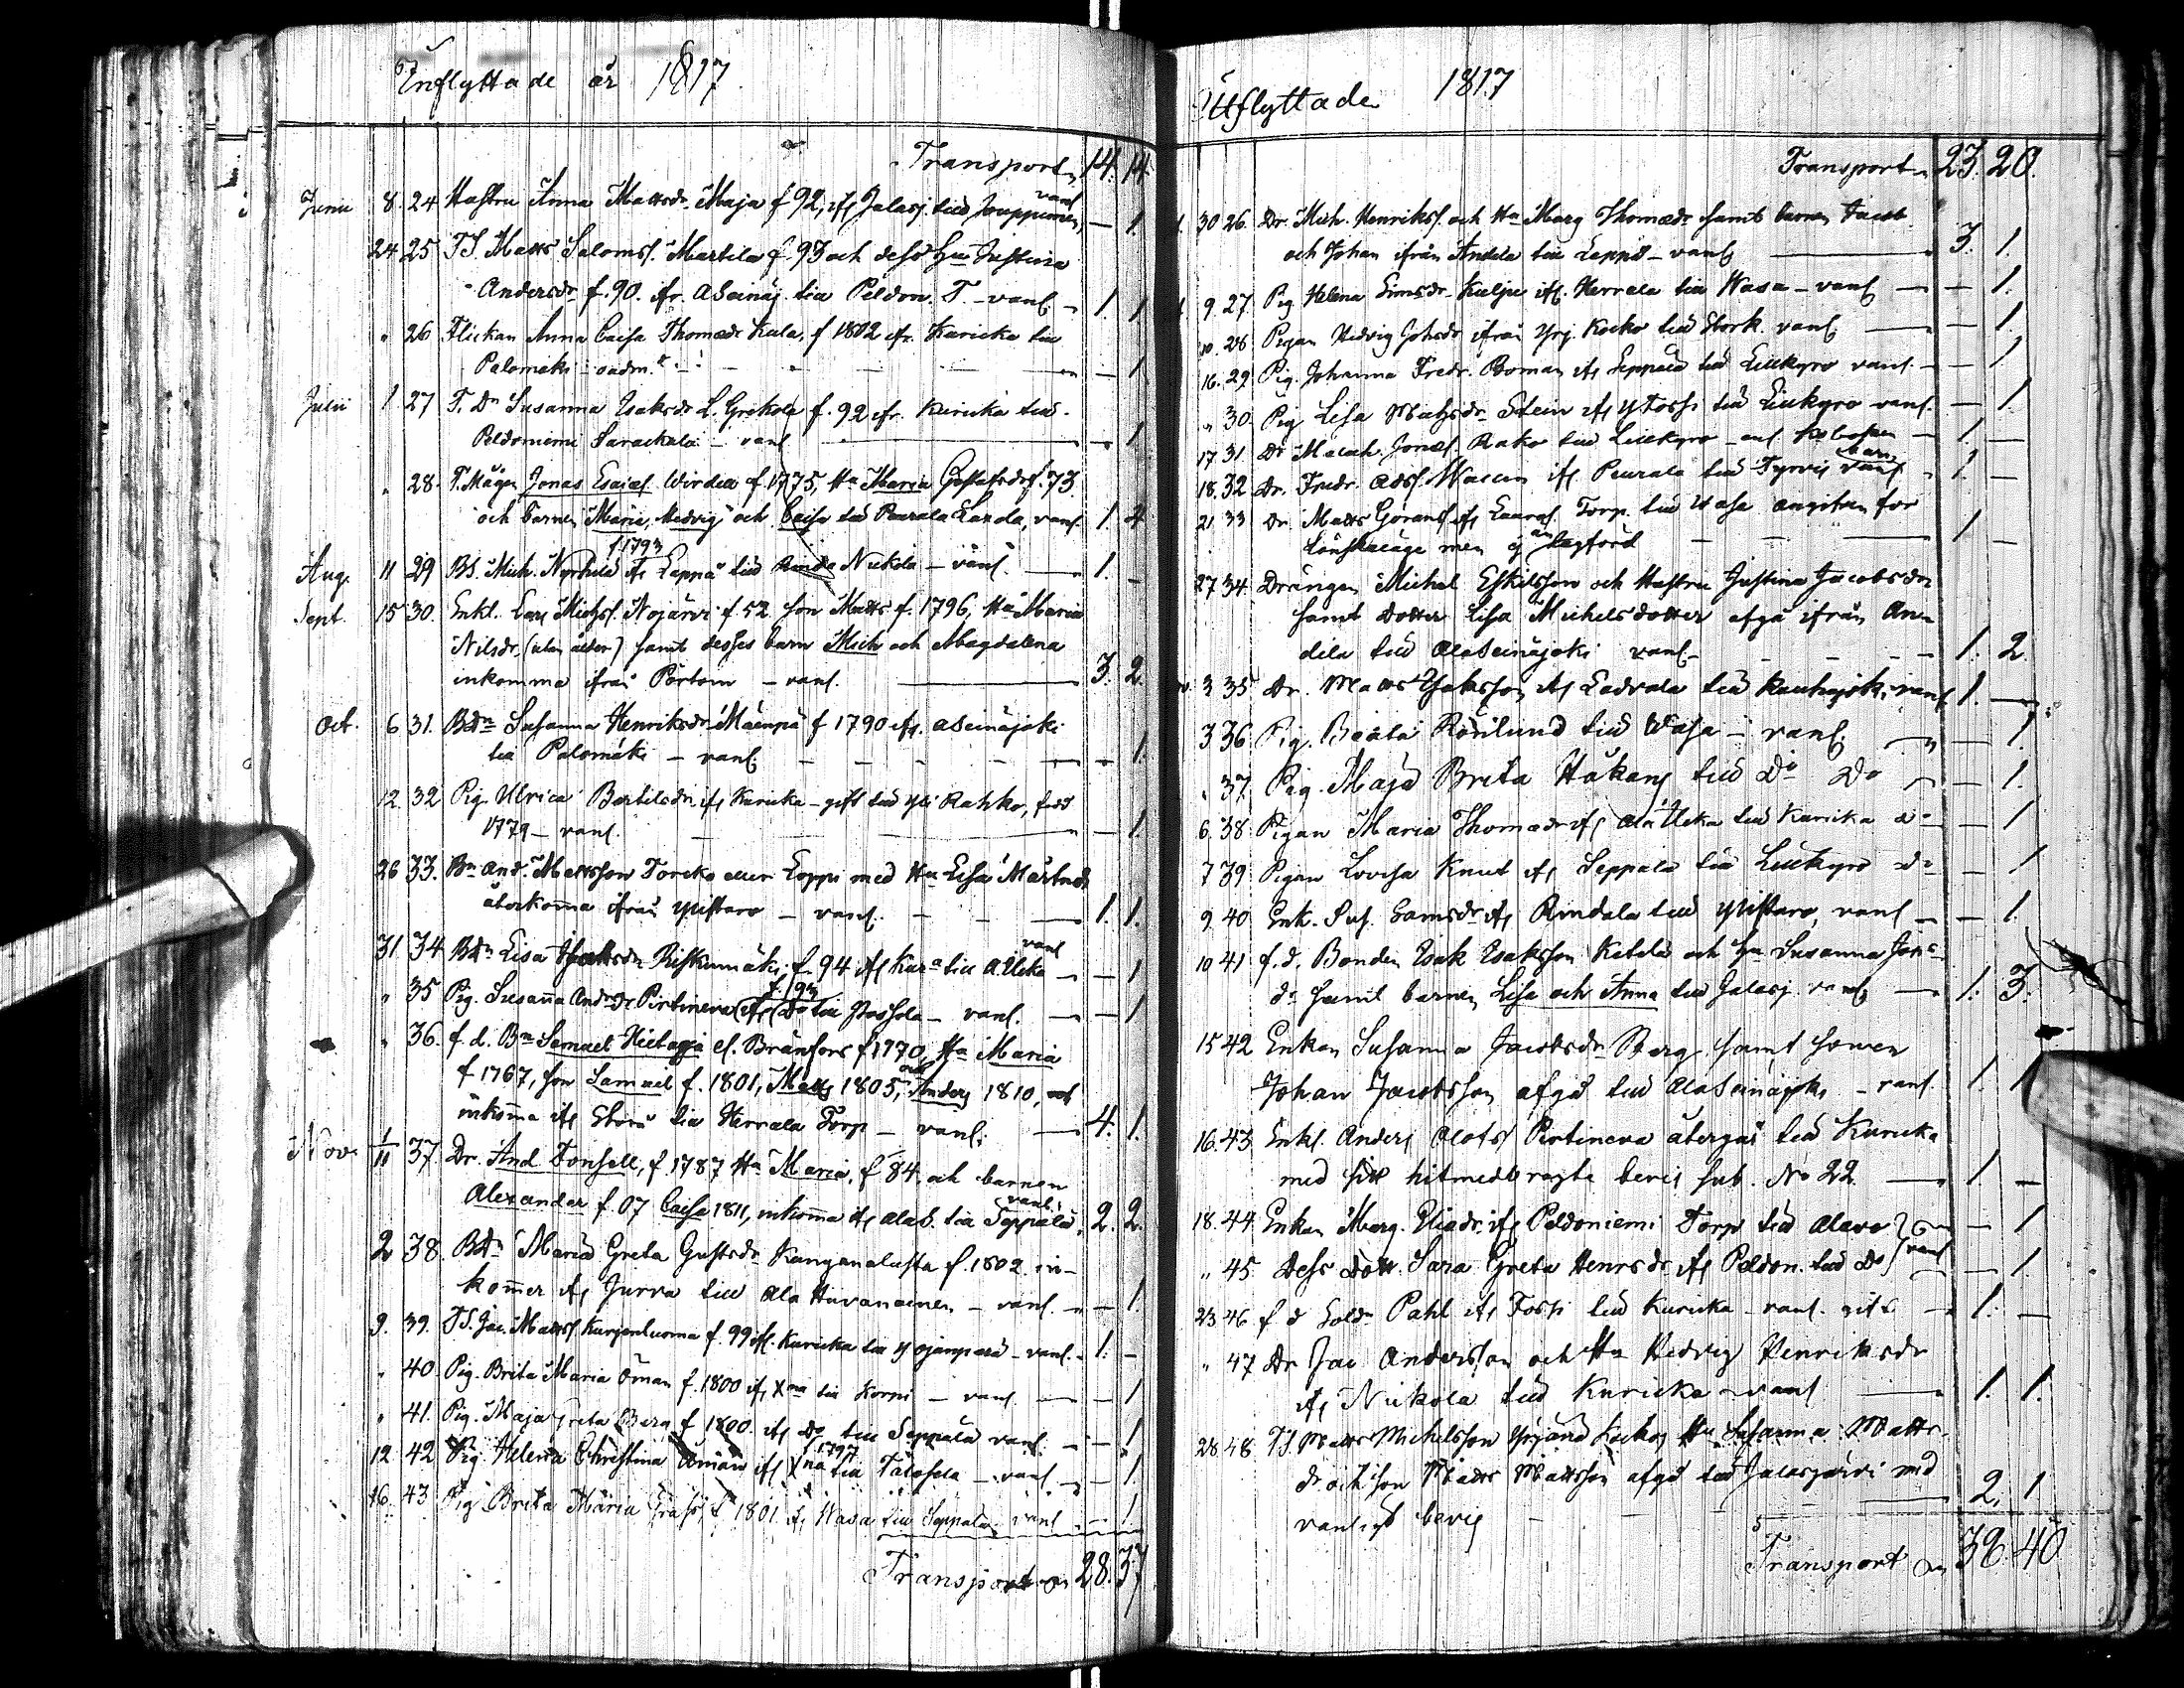 Inflyttade år 1817
Transport 14. 14.
Junii 8. 24 Hustru Anna Mattsdr Maja f 92, ifr Jalasj. till Jouppinen, vanl — 1.
24 25 T.S. Matts Salomss. Martila f. 93 och dess Hu Justina
Andersdr f. 90. ifr. ASeinäj. till Peldon. T. – vanl – 1. 1
" 26 Flickan Anna Caisa Thomædr Kula, f 1802 ifr. Kuricka till
Palomäki – oadm. – 1
Julii 1 27 T. Dr Susanna Isaksdr L. Grekola f. 92 ifr. Kuricka till
Peldoniemi – vanl – 1.
" 28. T. Mågen Jonas Esaiæs. Wirdea f. 1775, Hu Maria Gustafsdr f. 73.
och barnen Maria, Hedvig och Caisa till Peurala Landa, vanl. 1. 4
f. 1793
Aug. 11 29 BS. Mich. ifr Leppä till Nickola – vanl. 1. –
Sept. 15 30. Enkl. Michss. Nojärvi f. 52 son Matts f. 1796, Hu Maria
Nilsdr, (utan ålder) samt desses barn Mich och Magdalena
inkomma ifrån Pörtom – vanl. 3. 2.
Oct. 6 31. BDr Susanna Henriksdr Mäenpä f 1790 ifr. aSeinäjoki
till Palomäki – vanl. – 1.
12. 32 Pig. Ulrica Bertilsdr ifr Kuricka – gift till Yli Rahko, född
1779 – vanl. – 1.
26 33. Bn And. Mattsson Toreko eller Loppi med Hu Lisa Mårtensdr
återkomma ifrån Ylistaro – vanl. – 1. 1.
31 34 BDr Lisa Mattsdr Riskumäki f. 94 ifr Kura till A.Ucka vanl – 1
" 35 Pig. Susanna Andersdr Pertineva f. 93 ifr Do till Possola – vanl. – 1
" 36. f. d. Bn Samuel Hietaoja el. Bränfors f 1770, Hu Maria
f 1767, son Samuel f. 1801, Matts 1805, och Anders 1810, och
inkomma ifr Storå till Herrala Torp – vanl. 4. 1.
Nov. 1/11 37. Dr. And Tonsell, f. 1787 Hu Maria, f 84, och barnen
Alexander f. 07 Caisa 1811, inkomma ifr alaS. till Seppälä, vanl. 2. 2.
2 38. BDr Maria Greta Gustsdr Kanganalusta f. 1802. in-
kommer ifr Jurva till Ala Huvanainen – vanl. – 1.
9. 39. T.S. Jac. Mattss Kurjenluoma f. 99 ifr. Kuricka till Yojanperä – vanl. – 1. –
" 40. Pig. Brita Maria Öman f. 1800 ifr Xna till Korpi – vanl. – 1
" 41. Pig. Maja Greta Berg f 1800. ifr Do till Seppälä vanl. – 1.
12. 42 Pig. Helena Christina Öman f. 1797 ifr Xna till Talosela – vanl – 1.
16. 43 Pig Brita Maria f 1801 ifr Wasa till Seppälä vanl – 1
Transport 28. 37
Utflyttade 1817
Transport 23. 20.
30 26. Dr. Mich. Henrikss. och Hu Marg Thomædr samt barnen Jacob
och Johan ifrån Andila till Lappo – vanl 3. 1.
9. 27. Pig. Helena Simsdr Kielpe ifr. Herrala till Wasa – vanl – 1.
10. 28 Pigan Hedvig Johsdr ifrån Yrj. Kocko till Stork. vanl. – 1.
16. 29. Pig. Johanna Fredr. Boman ifr Seppälä till Lillkyro vanl. – 1
" 30. Pig Lisa Mattsdr Stein ifr YTossi till Lillkyro vanl. – 1.
17 31 Dr Malach. Jonæs. Rako till Lillkyro – 1. –
18. 32 Dr. Fredr. Adss. Wallin ifr Peurala till Tyrvis vanl – 1. –
21 33 Dr. Matts Görans ifr Laaras. Torp. till Wasa angifven för
Lönskaläge men ej än lagförd – 1 –
27 34. Drängen Michel Eskilsson och Hustru Justina Jacobsdr
samt dotter Lisa Michelsdotter afgå ifrån An-
dila till AlaSeinäjoki vanl – 1. 2.
3 35 Dr. Matts Isaksson ifr Ladvala till Kauhajoki vanl 1. –
3 36 Pig. Beata Rönlund till Wasa – vanl. – 1.
" 37. Pig. Maja Brita Håkans till Do Do – 1.
6. 38. Pigan Maria Thomædr ifr Ala Ucka till Kuricka do – 1
7 39 Pigan Lovisa Knut ifr Seppälä till Lillkyro do – 1
9 40 Enk. Sus. Samsdr ifr Rindala till Ylistaro, vanl – 1.
10 41 f. d. Bonden Isak Isaksson Ketola och Hu Susanna Jos-
dr samt barnen Lisa och Anna till Jalasj. vanl. 1. 3.
15 42 Enkan Susanna Jacobsdr Berg samt sonen
Johan Jacobsson afgå till AlaSeinäjoki – vanl. 1. 1
16. 43 Enkl. Anders Alots Pertineva återgår till Kuricka
med sitt hitmedbragte bevis sub. No 22. – 1 –
18. 44. Enkan Marg. Eliædr ifr Peldoniemi Torp till Alavo – 1
" 45 Dess Dott. Sara Greta Henrsdr ifr Peldon. till Do vanl – 1.
23 46 f d Sold. Pahl ifr Tossi till Kuricka – vanl. – 1. –
" 47 Dr Jac Andersson och Hu Hedvig Henriksdr
ifr Nickola till Kuricka – vanl – 1. 1.
28 48. T.S. Matts Michelsson Yrjänä Kocko, Hu Susanna Matts-
dr och son Matts Mattsson afgå till Jalasjärvi med
vanligt bevis – 2. 1
Transport 38. 40